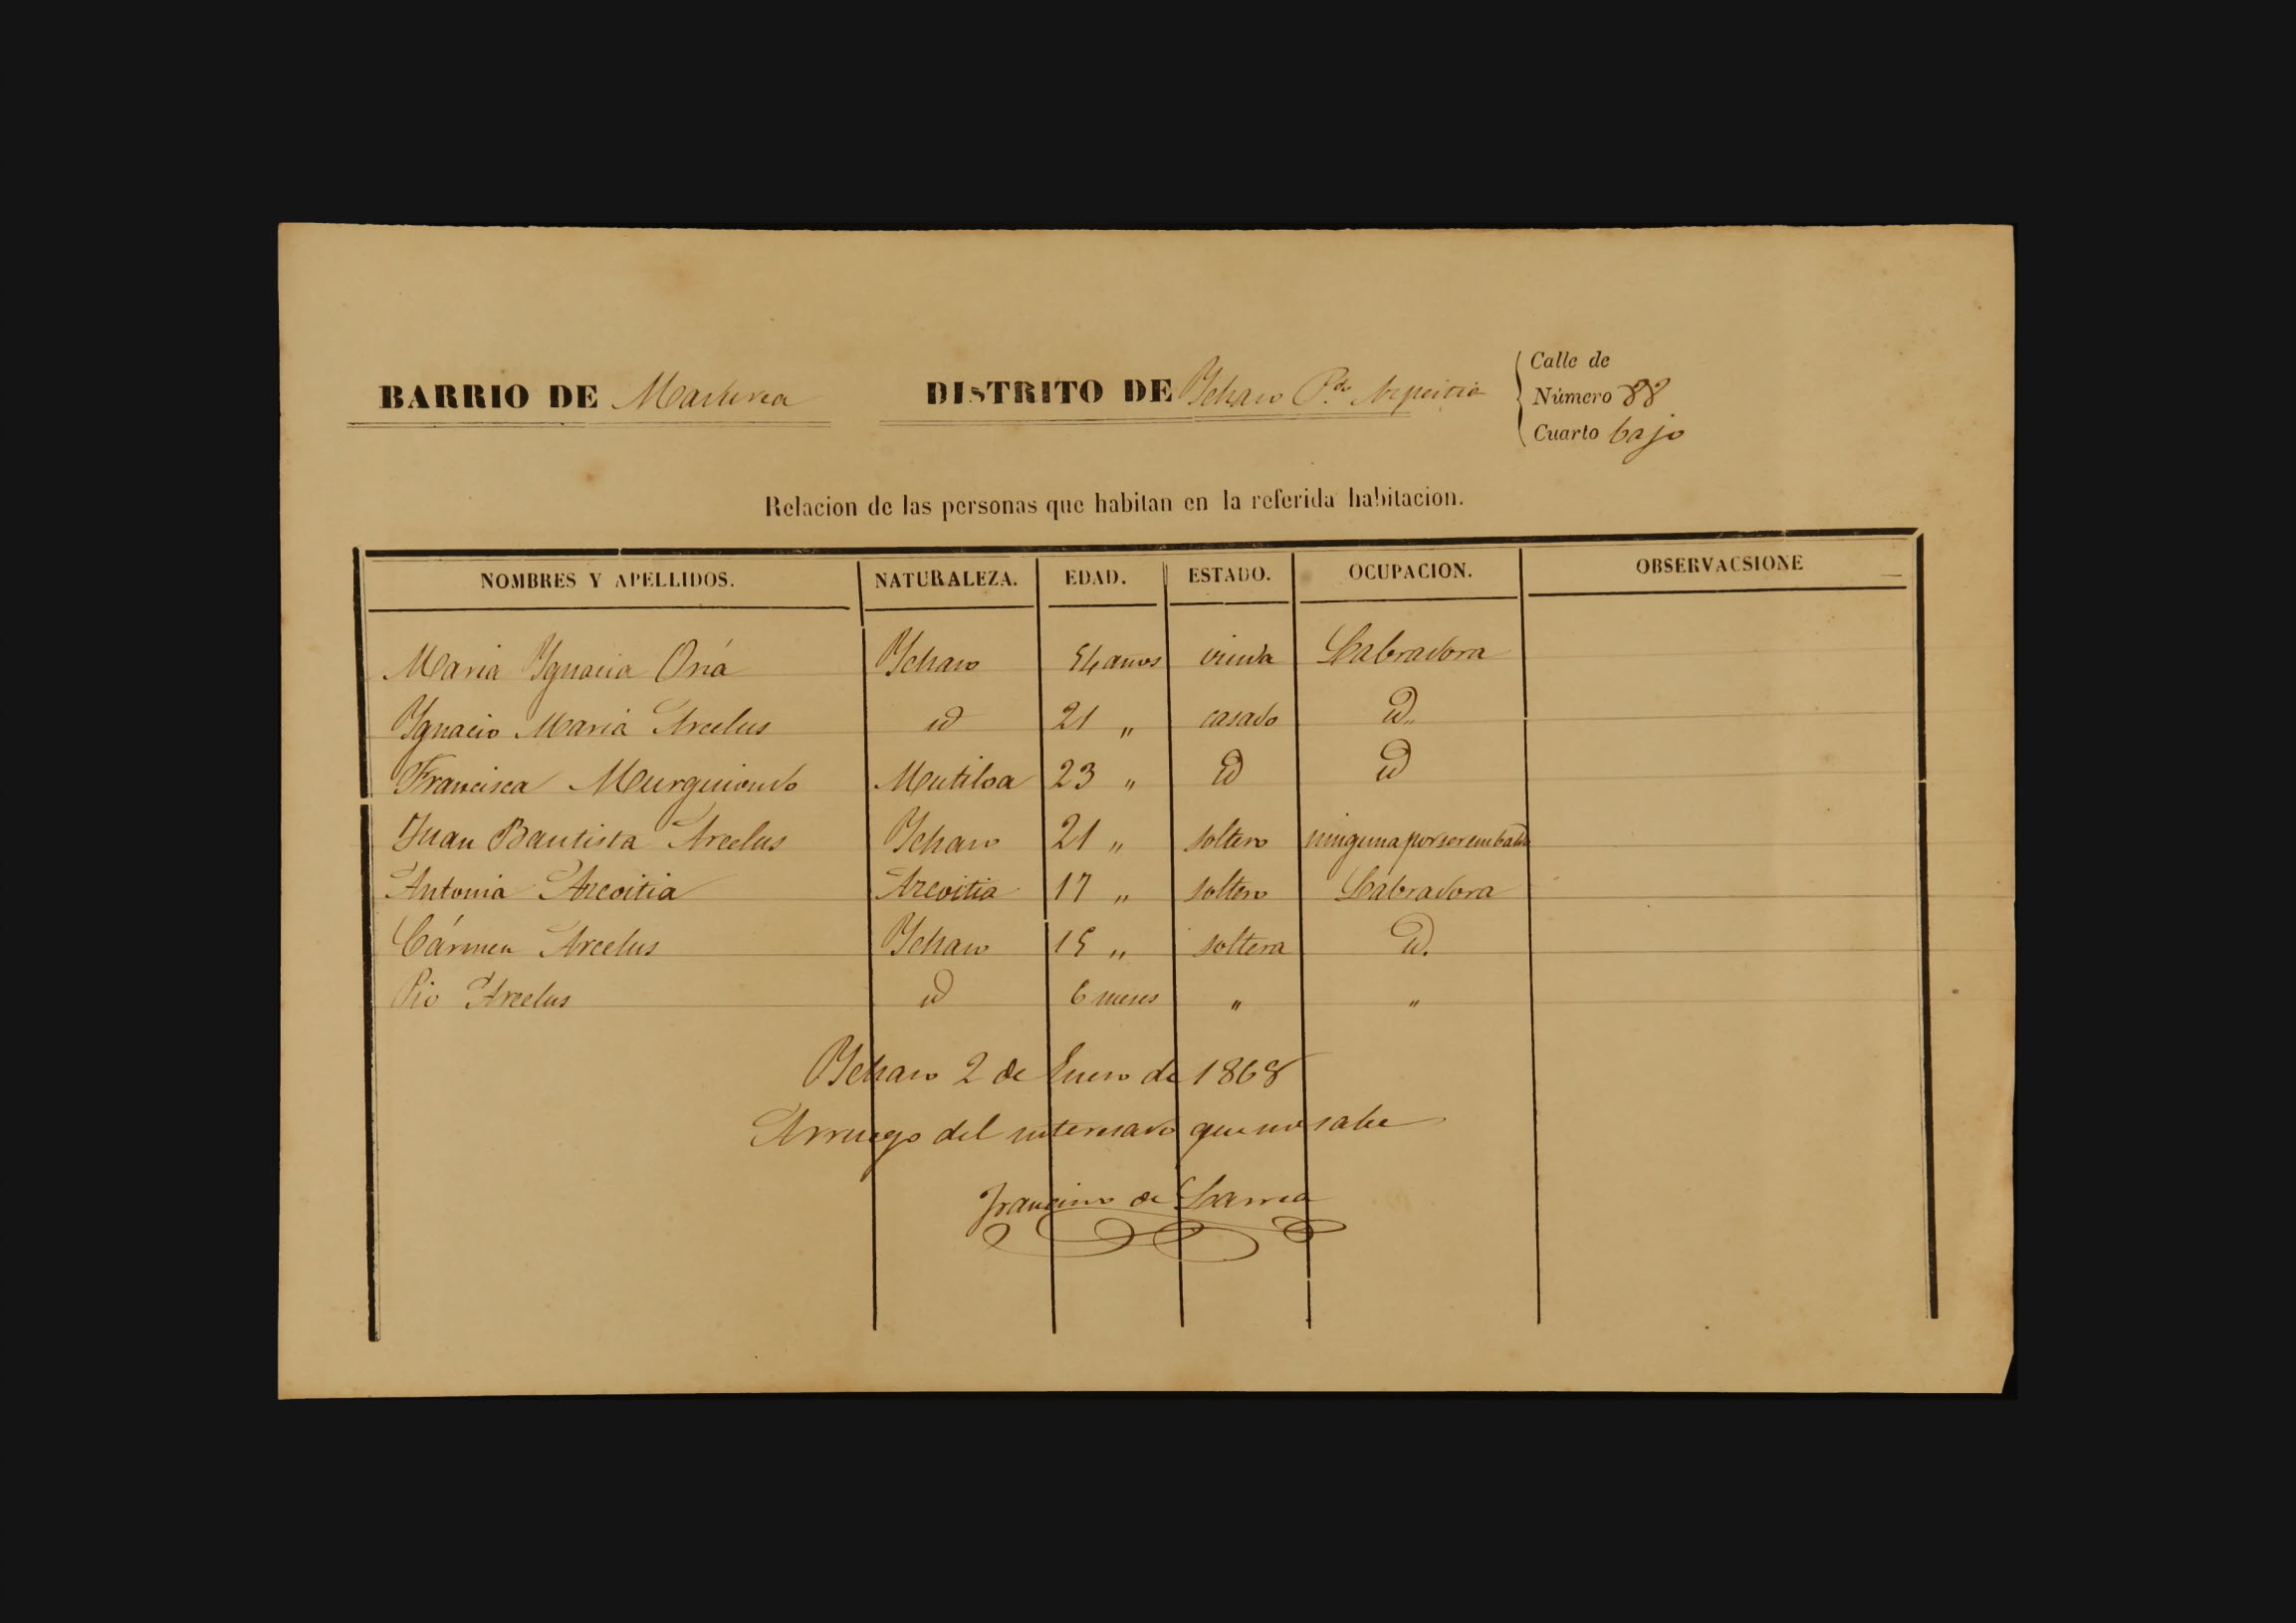 BARRIO DE Martirea DISTRITO DE Ychaso P.do Azpeitia
Calle de
Número 88
Cuarto bajo
Relacion de las personas que habitan en la referida habitacion.
NOMBRES Y APELLIDOS. NATURALEZA. EDAD. ESTADO. OCUPACION. OBSERVACSIONE
Maria Ygnacia Oria Ychaso 54 años viuda Labradora
Ygnacio Maria Arcelus id 21 " casado id.
Francisca Murguiondo Mutiloa 23 " id id
Juan Bautista Arcelus Ychaso 21 " soltero ninguna por ser
Antonia Azcoitia Azcoitia 17 " soltero Labradora
Cármen Arcelus Ychaso 15 " soltera id.
Pio Arcelus id 6 meses " "
Ychaso 2 de Enero de 1868
Arruego del interesado que no sabe
Francisco de Larrea